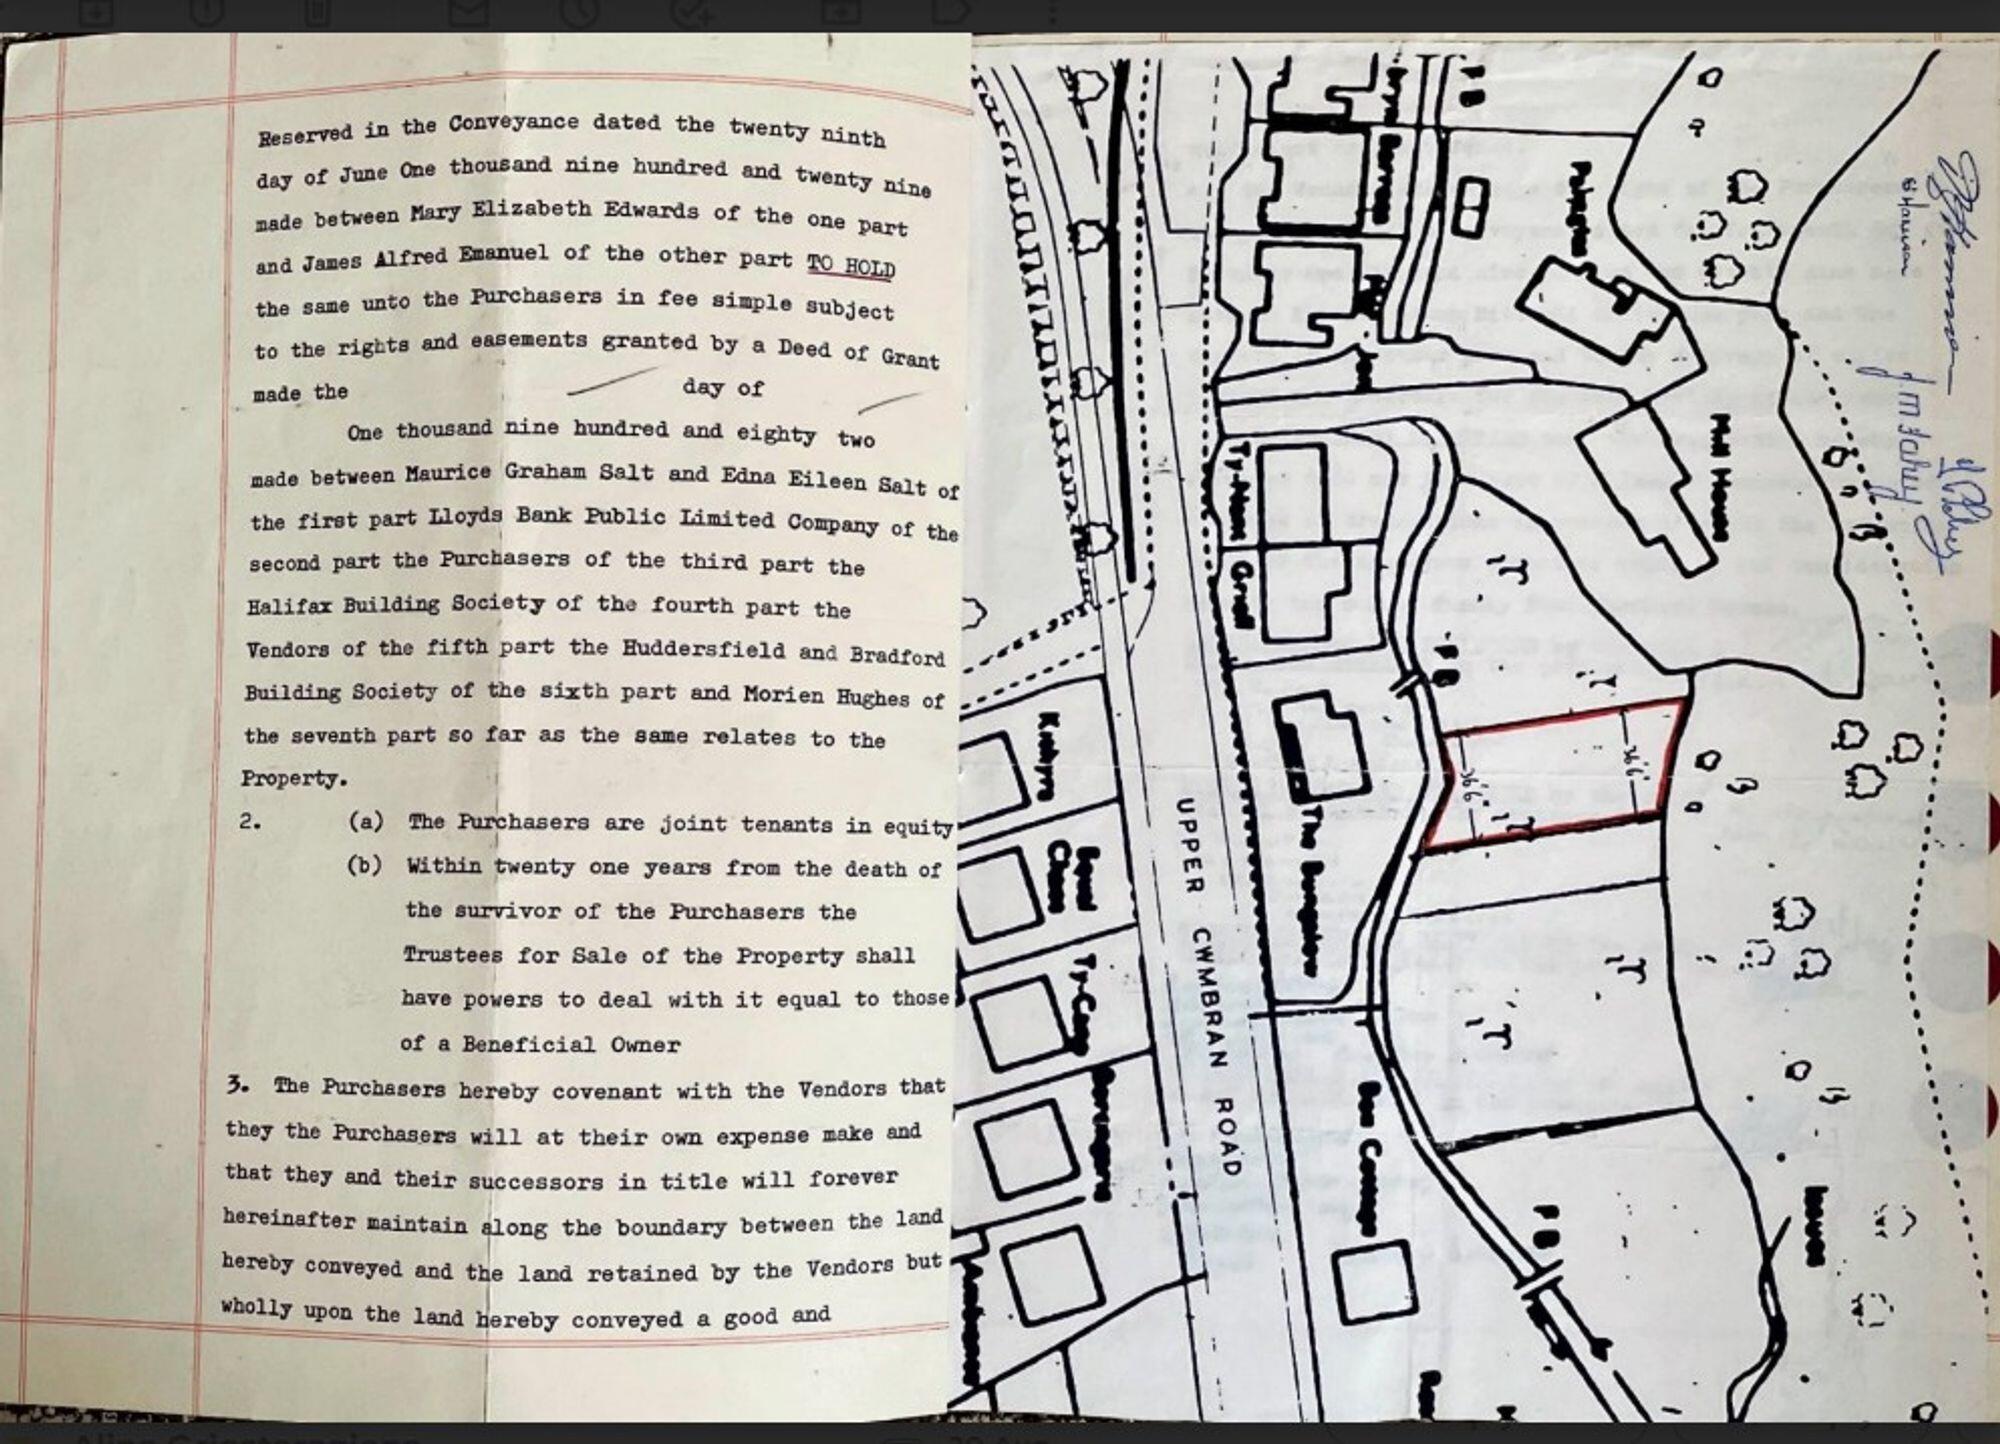 Reserved in the Conveyance dated the twenty ninth
day of June One thousand nine hundred and twenty nine
made between Mary Elizabeth Edwards of the one part
and James Alfred Emanuel of the other part TO HOLD
the same unto the Purchasers in fee simple subject
to the rights and easements granted by a Deed of Grant
made the day of
One thousand nine hundred and eighty two
made between Maurice Graham Salt and Edna Eileen Salt of
the first part Lloyds Bank Public Limited Company of the
second part the Purchasers of the third part the
Halifax Building Society of the fourth part the
Vendors of the fifth part the Huddersfield and Bradford
Building Society of the sixth part and Morien Hughes of
the seventh part so far as the same relates to the
Property.
2. (a) The Purchasers are joint tenants in equity
(b) Within twenty one years from the death of
the survivor of the Purchasers the
Trustees for Sale of the Property shall
have powers to deal with it equal to those
of a Beneficial Owner
3. The Purchasers hereby covenant with the Vendors that
they the Purchasers will at their own expense make and
that they and their successors in title will forever
hereinafter maintain along the boundary between the land
hereby conveyed and the land retained by the Vendors but
wholly upon the land hereby conveyed a good and
F B
Mill House
Ty-Nant
F B
36'6"
36'6"
The Bungalow
UPPER CWMBRAN ROAD
Ty-Coed
Issues
F B